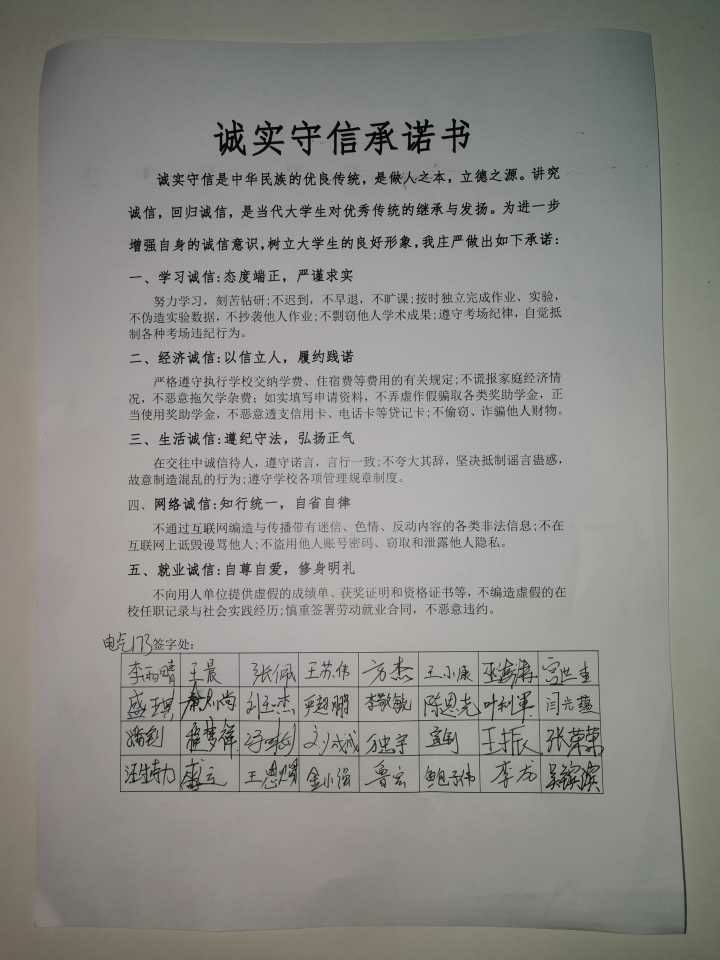 诚实守信承诺书
诚实守信是中华民族的优良传统，是做人之本，立德之源。讲究
诚信，回归诚信，是当代大学生对优秀传统的继承与发扬。为进一步
增强自身的诚信意识,树立大学生的良好形象,我庄严做出如下承诺:
一、学习诚信:态度端正，严谨求实
努力学习，刻苦钻研;不迟到，不早退，不旷课;按时独立完成作业、实验，
不伪造实验数据，不抄袭他人作业;不剽窃他人学术成果;遵守考场纪律，自觉抵
制各种考场违纪行为。
二、经济诚信:以信立人，履约践诺
严格遵守执行学校交纳学费、住宿费等费用的有关规定;不谎报家庭经济情
况，不恶意拖欠学杂费；如实填写申请资料，不弄虚作假骗取各类奖助学金，正
当使用奖助学金，不恶意透支信用卡、电话卡等贷记卡;不偷窃、诈骗他人财物。
三、生活诚信:遵纪守法，弘扬正气
在交往中诚信待人，遵守诺言，言行一致;不夸大其辞，坚决抵制谣言蛊惑，
故意制造混乱的行为;遵守学校各项管理规章制度。
四、网络诚信:知行统一，自省自律
不通过互联网编造与传播带有迷信、色情、反动内容的各类非法信息;不在
互联网上诋毁谩骂他人;不盗用他人账号密码、窃取和泄露他人隐私。
五、就业诚信:自尊自爱，修身明礼
不向用人单位提供虚假的成绩单、获奖证明和资格证书等，不编造虚假的在
校任职记录与社会实践经历;慎重签署劳动就业合同，不恶意违约。
电气173签字处:
李雨晴 王晨 张佩 王苏伟 方杰 王小康 宫世生
李敬敏 陈恩光 叶利军
程梦祥 刘成诚 王振 张荣荣
汪生力 金小强 鲁云 鲍子伟 李龙 吴滨滨